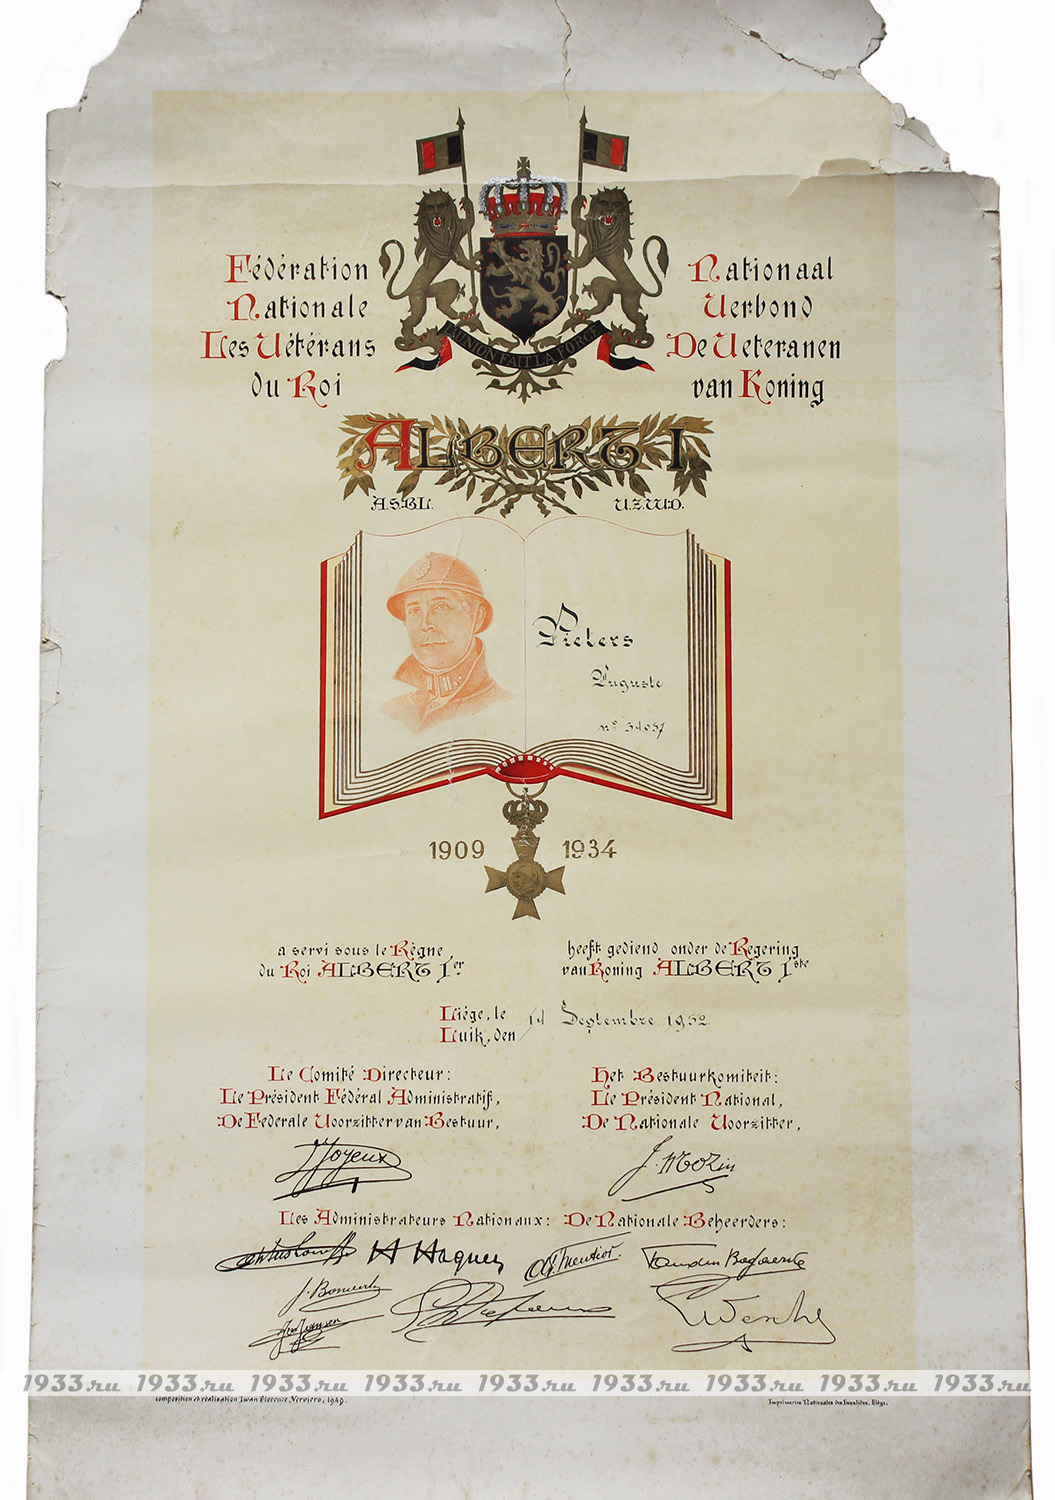 L'UNION FAIT LA FORCE
Fédération
Nationale
Les Vétérans
du Roi
Nationaal
Verbond
De Veteranen
van Koning
ALBERT I
A.S.B.L.
V.Z.W.D.
Pieters
Auguste
1909
1934
a servi sous le Règne
du Roi ALBERT Ier
heeft gediend onder de Regering
van Koning ALBERT Iste
Liége, le
Luik, den
14 Septembre 1952
Le Comité Directeur:
Le Président Fédéral Administratif,
De Federale Voorzitter van Bestuur,
Het Bestuurkomiteit:
Le Président National,
De Nationale Voorzitter,
J. Joyeux
J. Mozin
Les Administrateurs Nationaux: De Nationale Beheerders:
1933.ru 1933.ru 1933.ru 1933.ru 1933.ru 1933.ru 1933.ru 1933.ru 1933.ru
composition et réalisation Iwan Florence, Verviers, 1949.
Imprimeries Nationales des Invalides, Liége.